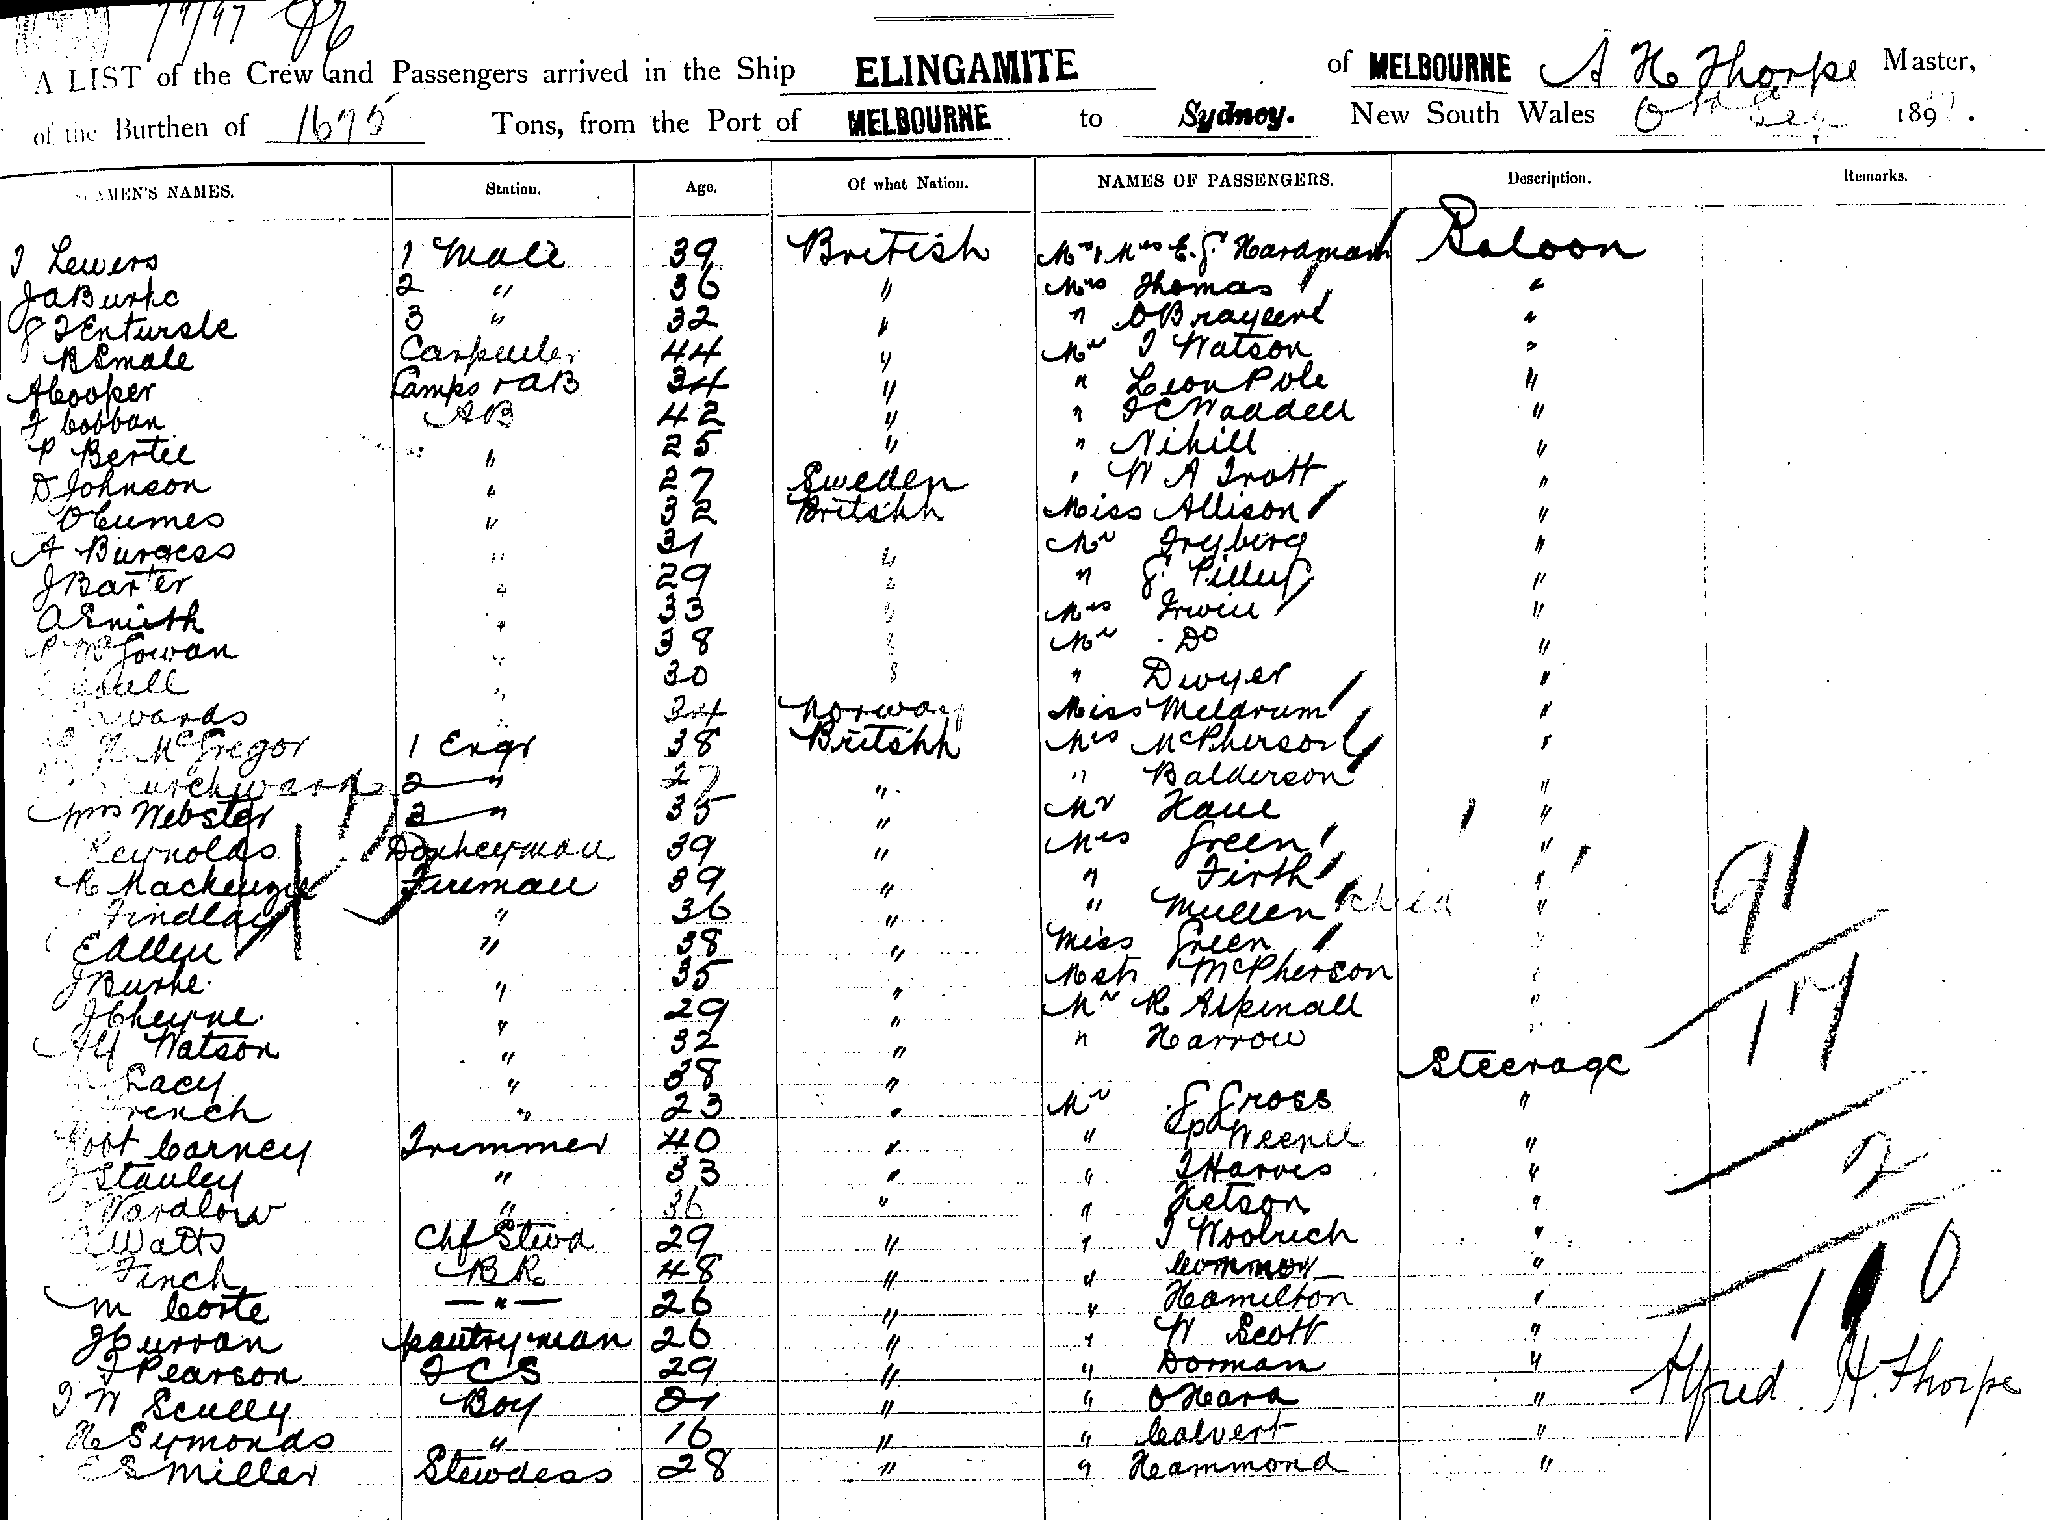 79/97
A LIST of the Crew and Passengers arrived in the Ship ELINGAMITE of MELBOURNE A H Thorpe Master,
of the Burthen of 1675 Tons, from the Port of MELBOURNE to Sydney. New South Wales 189
AMEN'S NAMES. Station. Age. Of what Nation. NAMES OF PASSENGERS. Description. Remarks.
Lewers 1 Mate 39 British Mr, Mrs E.J. Hardman Saloon
J A Burke 2 " 36 " Mrs Thomas "
3 " 32 " " "
B Smale Carpenter 44 " Mr T Watson "
A Cooper Lamps & AB 34 " " Leon Pole "
F Cobban AB 42 " " J C Waddell "
P Bertie " 25 " " Nihill "
D Johnson " 27 Sweden " W A Trott "
O Cumes " 32 Britshh Miss Allison "
A Burgess " 31 " Mr Fryberg "
J Barter " 29 " " "
A Smith " 33 " Mrs Irwin "
P McGowan " 38 " Mr Do "
" 30 " " Dwyer "
" 34 Norway Miss Meldrum "
McGregor 1 Engr 38 Britshh Mrs McPherson "
2 " 27 " " Balderson "
Wm Webster 3 " 35 " Mr "
Reynolds Donkeyman 39 " Mrs Green "
R Mackenzie Fireman 39 " " Firth "
Findlay " 36 " " Mullen child "
E Allen " 38 " Miss Green "
J Burke " 35 " Mstr McPherson "
J Cheyne " 29 " Mr R Aspinall "
Alf Watson " 32 " " Harrow "
Lacy " 38 " Steerage
French " 23 " Mr J Gross "
Robt Carney Trimmer 40 " " "
J Stanley " 33 " " "
Wardlow " 36 " " "
Watts Chf Stewd 29 " " T Woolrich "
Finch B.R. 48 " " Connor "
M Corte " 26 " " Hamilton "
J Curran pantryman 26 " " W Scott "
T Pearson F C S 29 " " Dorman "
T W Scully Boy 21 " " O'Hara "
H Symonds " 16 " " Calvert "
E S Miller Stewdess 28 " " Hammond "
91
17
2
110
Alfred H. Thorpe